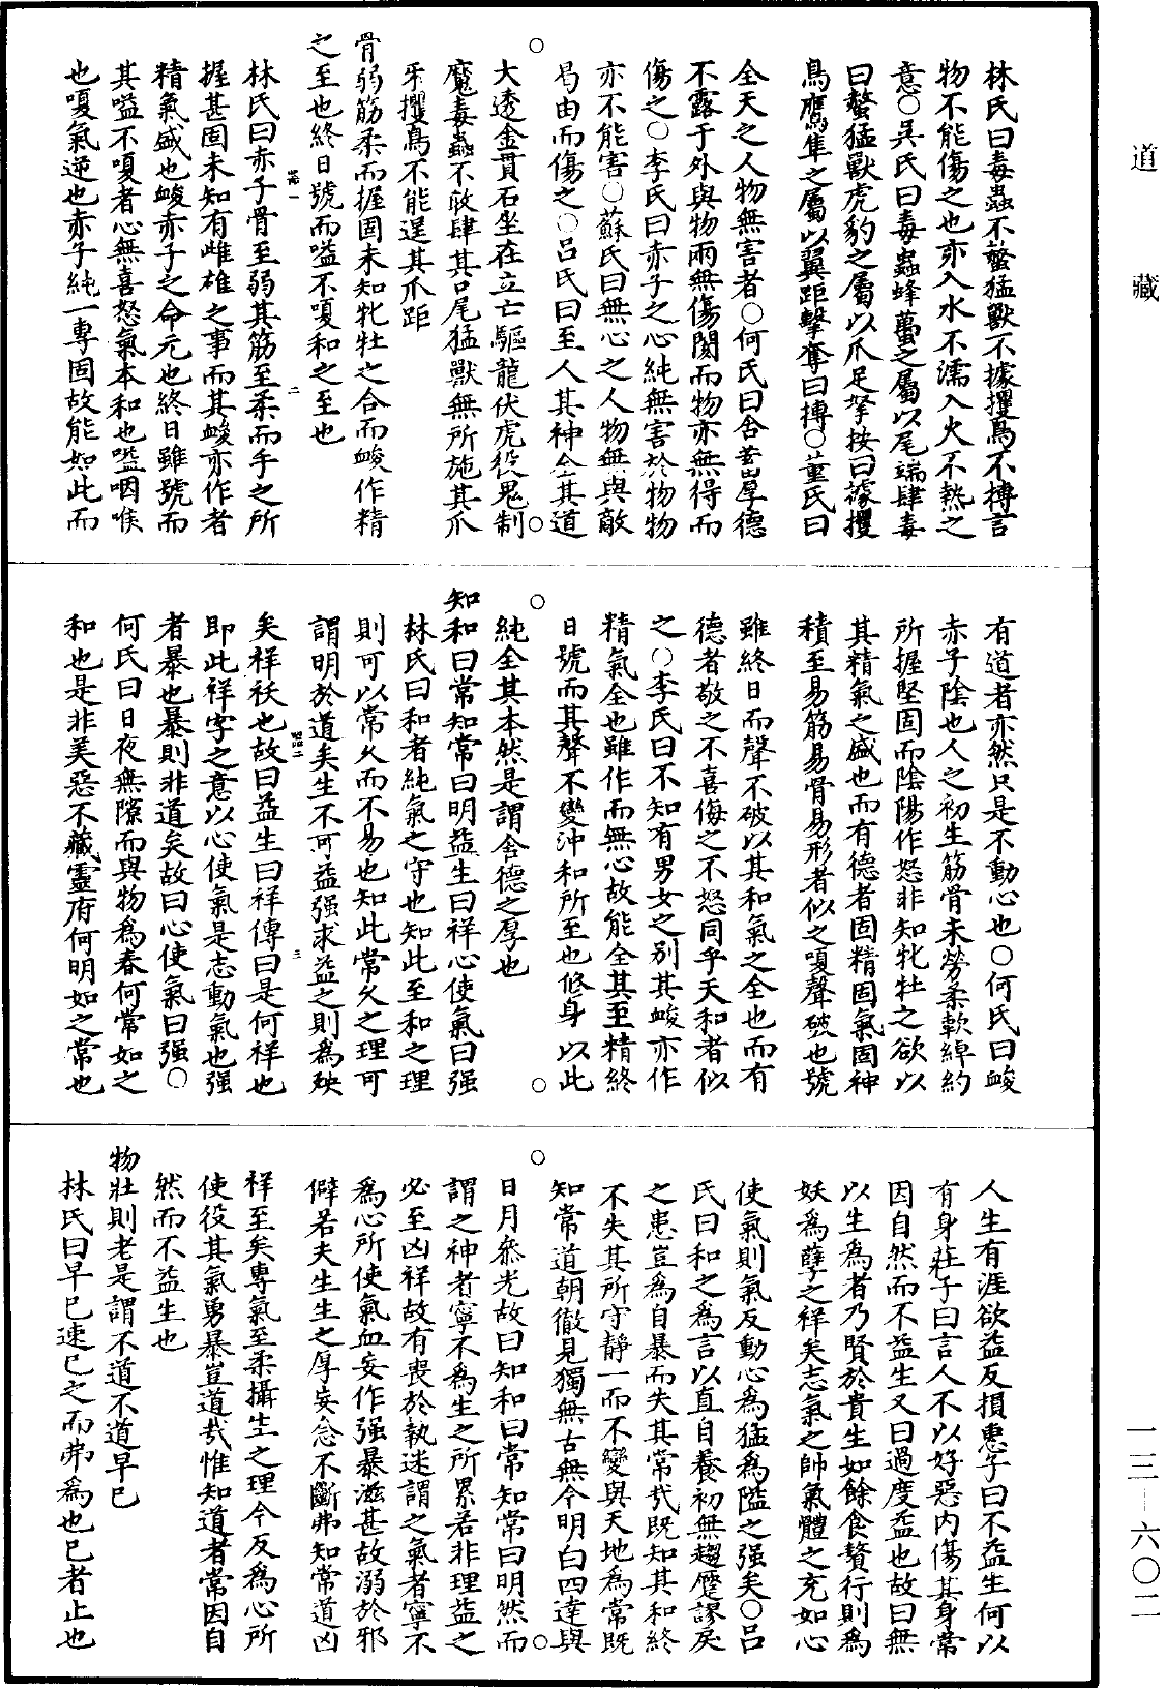 道藏
林氏曰毒蟲不螫猛獸不據攫鳥不搏言
物不能傷之也亦入水不濡入火不熱之
意○吳氏曰毒蟲蜂蠆之屬以尾端肆毒
曰螫猛獸虎豹之屬以爪足拏按曰據攫
鳥鷹隼之屬以翼距擊奪曰搏○董氏曰
全天之人物無害者○何氏曰含畜厚德
不露于外與物兩無傷閡而物亦無得而
傷之○李氏曰赤子之心純無害於物物
亦不能害○蘇氏曰無心之人物無與敵
曷由而傷之○呂氏曰至人其神全其道
大透金貫石坐在立亡驅龍伏虎役鬼制
魔毒蟲不敢肆其口尾猛獸無所施其爪
牙攫鳥不能逞其爪距
骨弱筋柔而握固未知牝牡之合而峻作精
之至也終日號而嗌不嗄和之至也
林氏曰赤子骨至弱其筋至柔而手之所
握甚固未知有雌雄之事而其峻亦作者
精氣盛也峻赤子之命元也終日雖號而
其嗌不嗄者心無喜怒氣本和也嗌咽喉
也嗄氣逆也赤子純一專固故能如此而
有道者亦然只是不動心也○何氏曰峻
赤子陰也人之初生筋骨未勞柔軟綽約
所握堅固而陰陽作怒非知牝牡之欲以
其精氣之盛也而有德者固精固氣固神
積至易筋易骨易形者似之嗄聲破也號
雖終日而聲不破以其和氣之全也而有
德者敬之不喜侮之不怒同乎天和者似
之○李氏曰不知有男女之別其峻亦作
精氣全也雖作而無心故能全其至精終
日號而其聲不變沖和所至也修身以此
純全其本然是謂含德之厚也
知和曰常知常曰明益生曰祥心使氣曰强
林氏曰和者純氣之守也知此至和之理
則可以常久而不易也知此常久之理可
謂明於道矣生不可益强求益之則為殃
矣祥祅也故曰益生曰祥傳曰是何祥也
即此祥字之意以心使氣是志動氣也强
者暴也暴則非道矣故曰心使氣曰强○
何氏曰日夜無隙而與物為春何常如之
和也是非美惡不藏靈府何明如之常也
人生有涯欲益反損惠子曰不益生何以
有身莊子曰言人不以好惡內傷其身常
因自然而不益生又曰過度益也故曰無
以生為者乃賢於貴生如餘食贅行則為
妖為孽之祥矣志氣之帥氣體之充如心
使氣則氣反動心為猛為隘之强矣○呂
氏曰和之為言以直自養初無趨蹙謬戾
之患豈為自暴而失其常哉既知其和終
不失其所守靜一而不變與天地為常既
知常道朝徹見獨無古無今明白四達與
日月叅光故曰知和曰常知常曰明然而
謂之神者寧不為生之所累若非理益之
必至凶祥故有喪於執迷謂之氣者寧不
為心所使氣血妄作强暴滋甚故溺於邪
僻若夫生生之厚妄念不斷弗知常道凶
祥至矣專氣至柔攝生之理今反為心所
使役其氣勇暴豈道哉惟知道者常因自
然而不益生也
物壯則老是謂不道不道早已
林氏曰早已速已之而弗為也已者止也
一三—六〇二